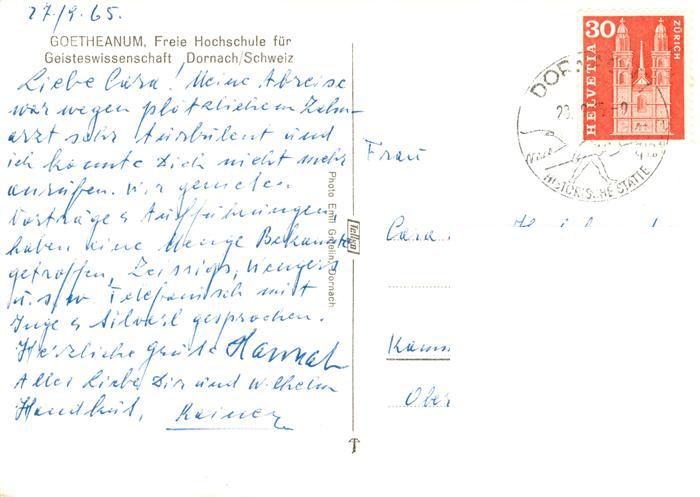 27/9.65.
GOETHEANUM, Freie Hochschule für
Geisteswissenschaft Dornach/Schweiz
Liebe Cara! Meine Abreise
war wegen plötzlichem Zahn-
arzt sehr turbulent und
ich konnte Dich nicht mehr
anrufen. Wir genießen
Vorträge & Aufführungen
haben eine Menge Bekannte
getroffen, Zeissigs,
u.s.w. Telefonisch mit
Inge & gesprochen.
Herzliche Grüße Hannah
Alles Liebe Dir und Wilhelm
Rainer
Photo Emil Gmelin, Dornach
Frau
Cara
Ober
HELVETIA
30
ZÜRICH
HISTORISCHE STÄTTE